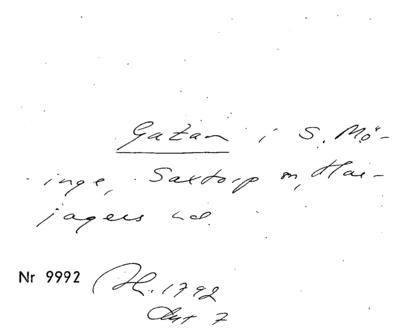 Gatan i S. Mö-
inge, Saxtorp sn, Har-
jagers hd.
Nr 9992
1792